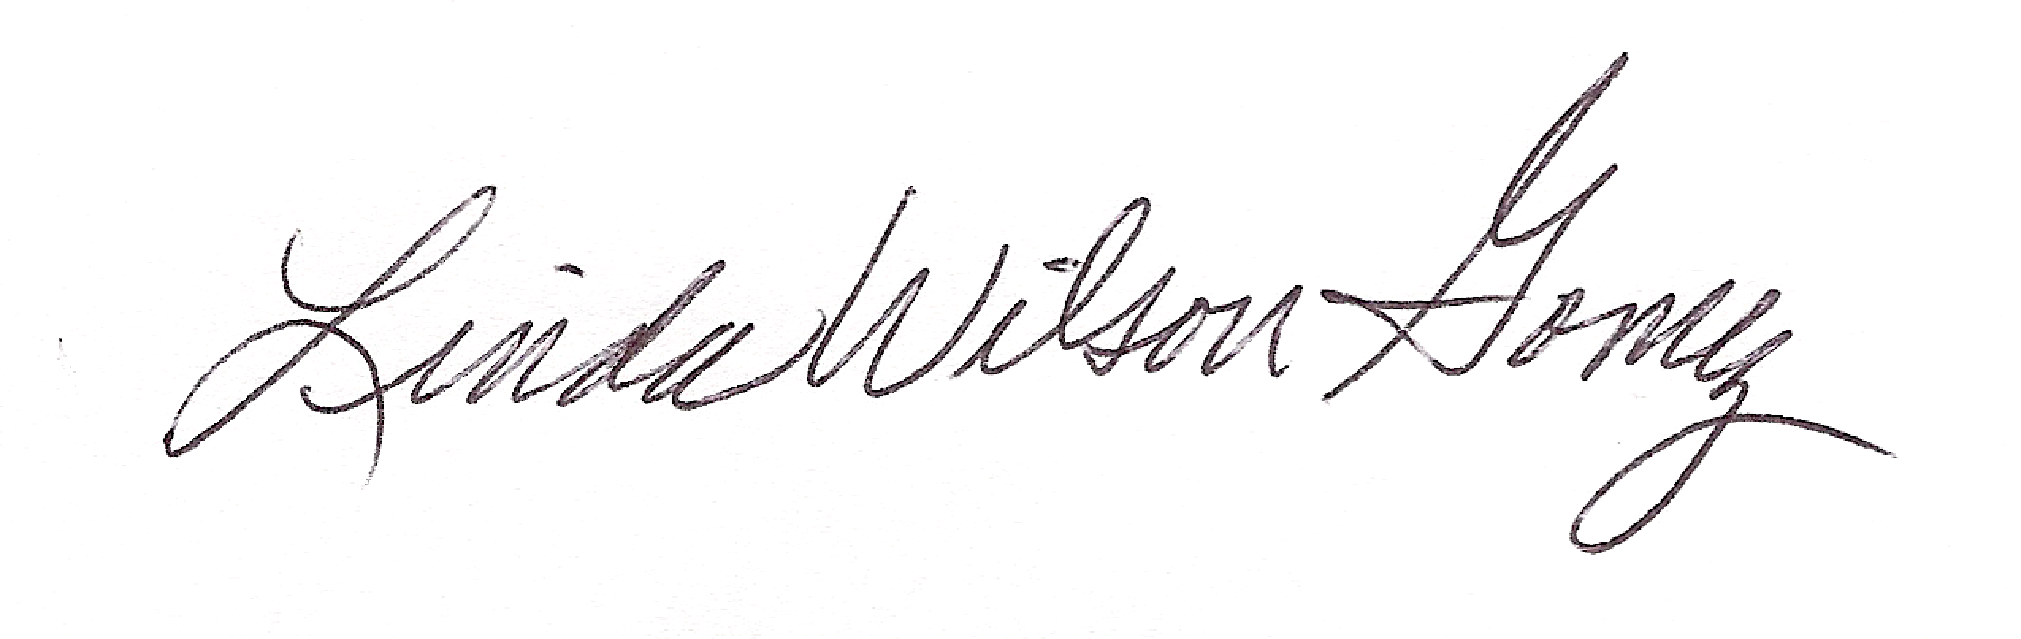 Linda Wilson Gomez